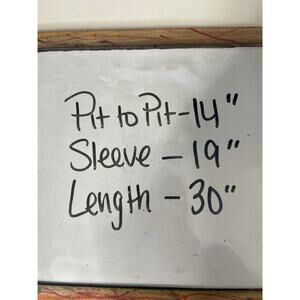 Pit to Pit - 14"
Sleeve - 19"
Length - 30"